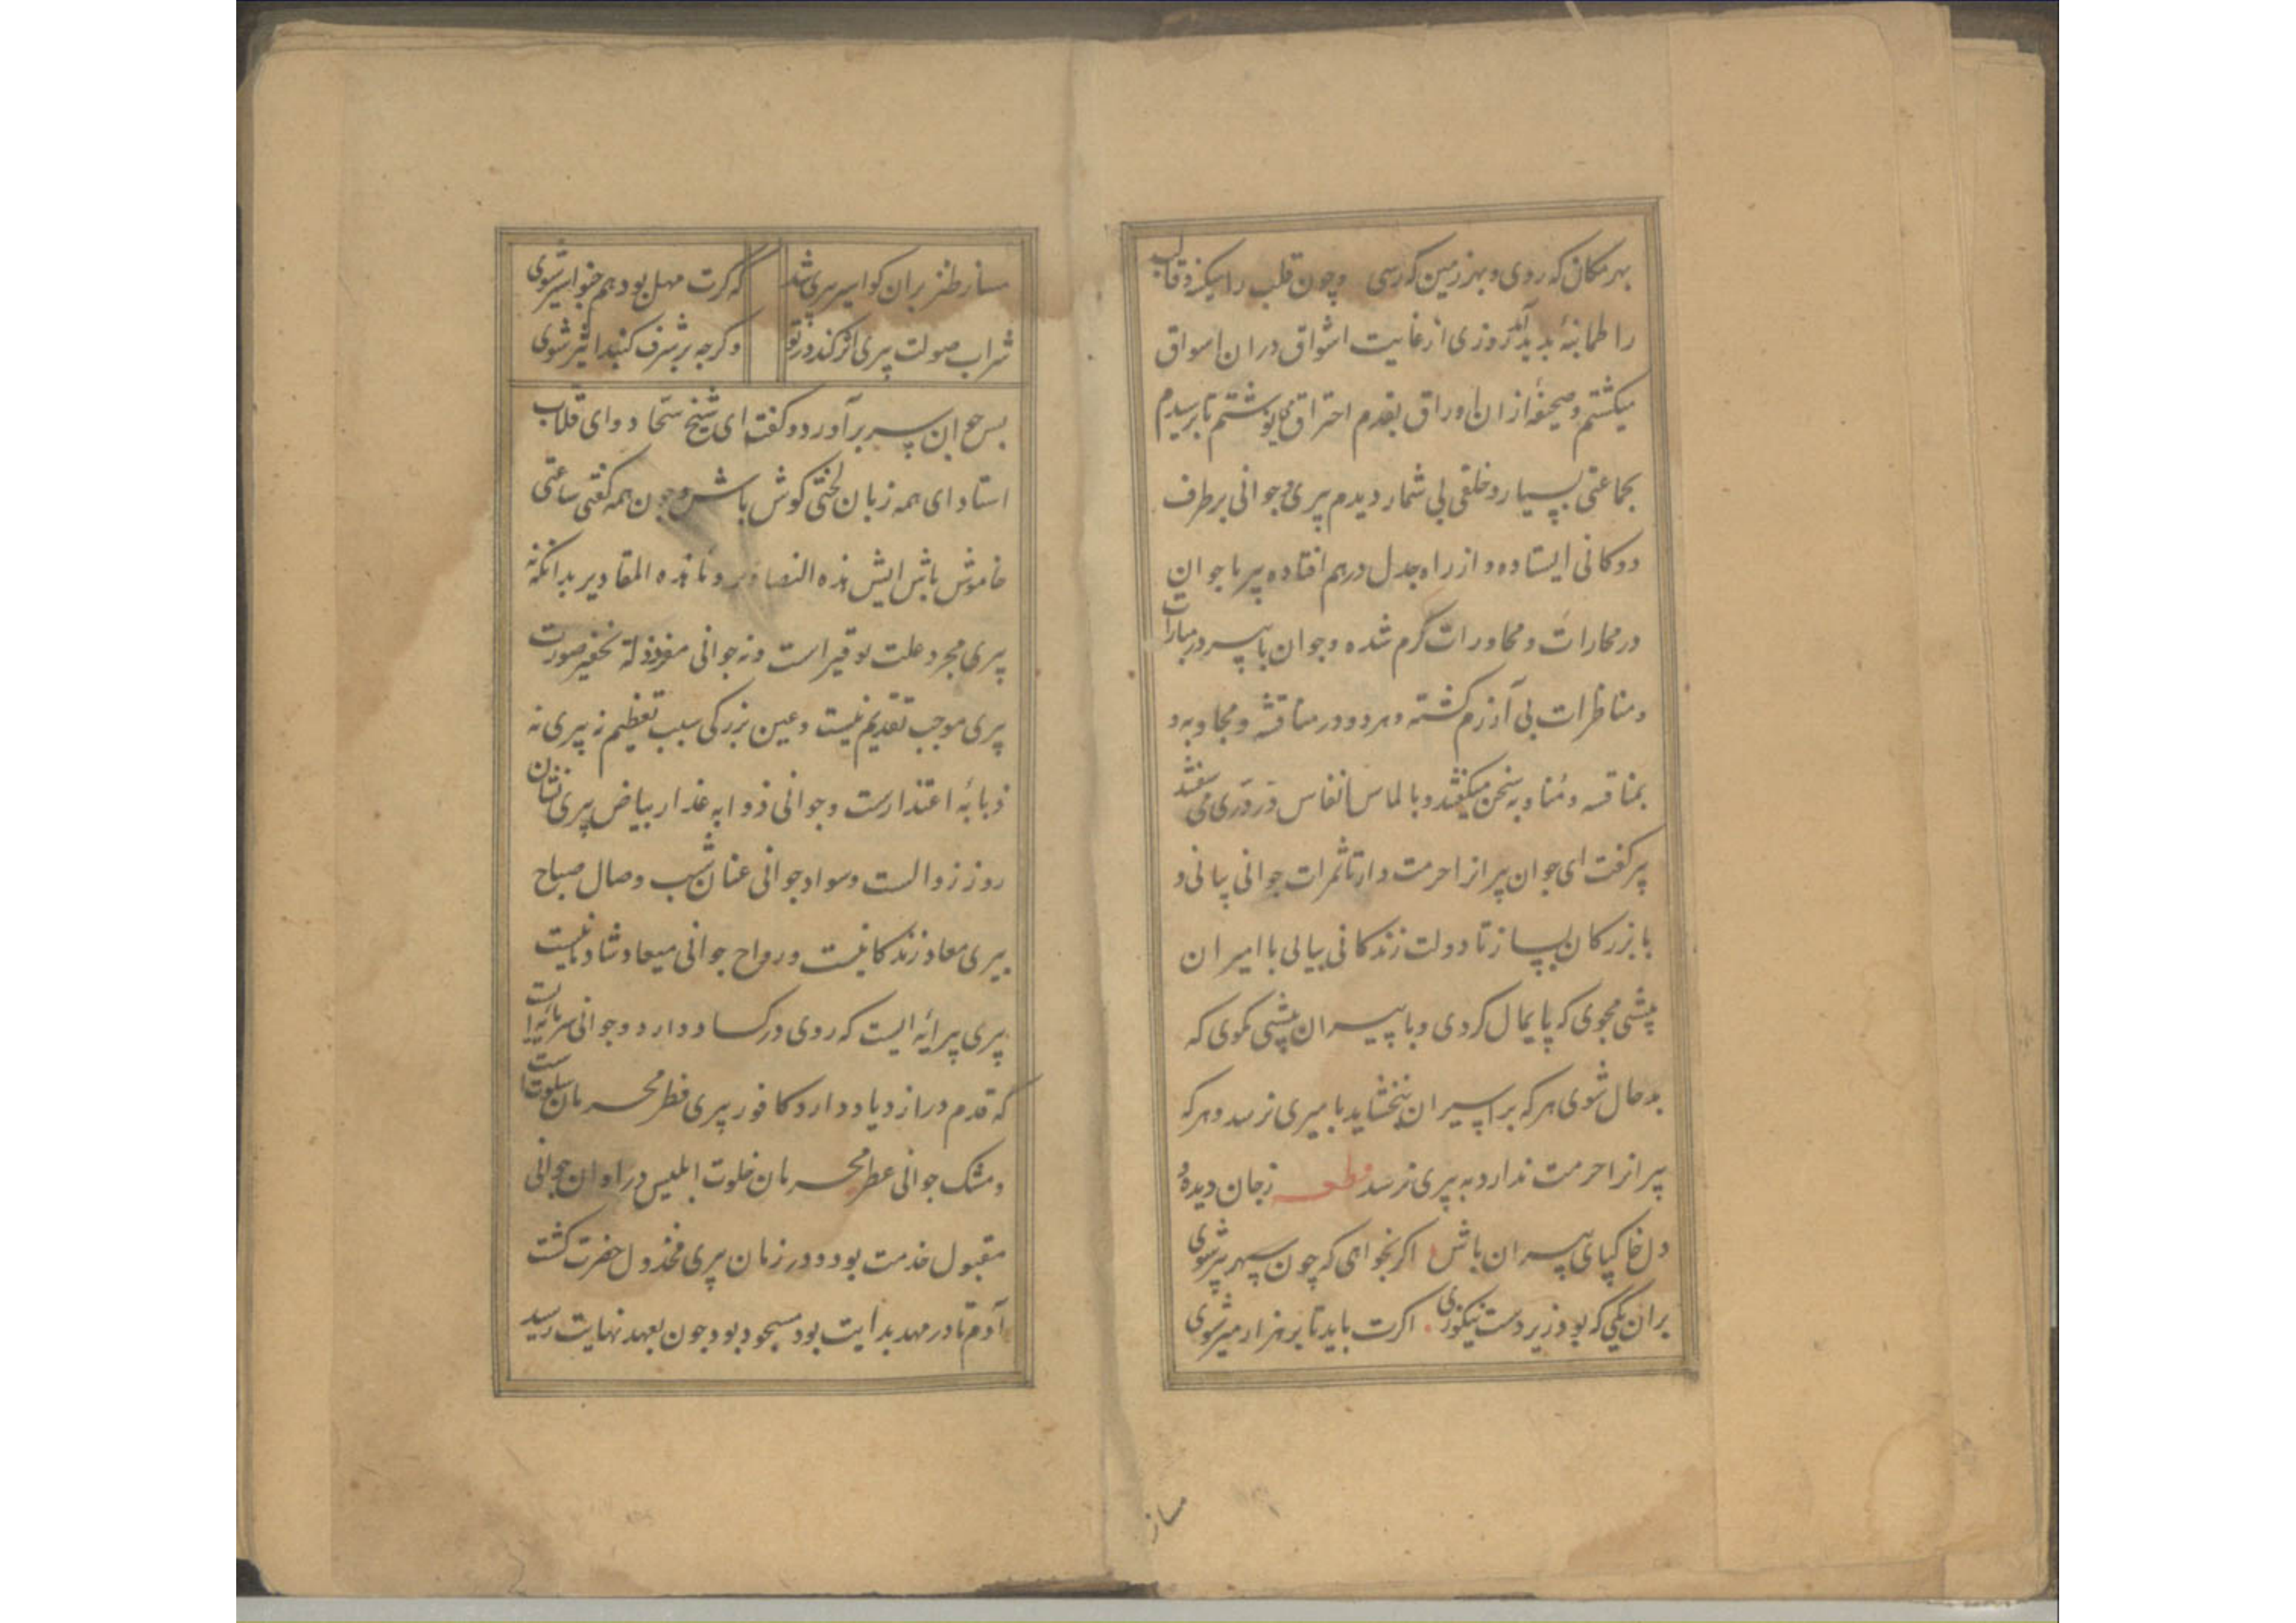 بهر مکان که روی و بهر زمین که رسی و چون قلب را سکینه و قالب
را طمانینهٔ پدید آمد روزی از غایت اشواق در ان اسواق
میکشتم و صحیفهٔ از ان اوراق بقدم احتراق می نوشتم تا برسیدم
بجماعتی بسیار و خلقی بی شمار دیدم پیری و جوانی بر طرف
دوکانی ایستاده و از راه جدل درهم افتاده پیر با جوان
در محارات و محاورات گرم شده و جوان با پیر در مبارات
و مناظرات بی آزرم کشته و هر دو در مناقشه و مجاوبه و
بمنافسه و مناوبه سخن میکفتند و بالماس انفاس در دری می سفتند
پیر کفت ای جوان پیرانرا حرمت دار تا ثمرات جوانی یابی و
با بزرکان بساز تا دولت زندکانی بیابی با امیران
پیشی مجوی که پایمال کردی و با پیران بیشی مکوی که
بدحال شوی هر که بر اسیران نبخشاید بامیری نرسد و هر که
پیرانرا حرمت ندارد به پیری نرسد قطعه زجان دیدهٔ و
دل خاکپای پیران باش اکر بخواهی که چون سپهر پیر شوی
بر ان یکی که بود زیر دست نیکوزی اکرت باید تا بر هزار میر شوی
مساز
مساز طنز بران کو اسیر پیری شد که کرت مهل بود هم خنو اسیر شوی
شراب صولت پیری اثر کند در تو و کرچه بر شرف کنبد اثیر شوی
پس جوان سر بر آورد و کفت ای شیخ سخاد و ای قلاب
استاد ای همه زبان لختی کوش باش و چون همه کفتی ساعتی
خاموش باش ایش هذه التصاویر و ما هذه المقادیر بدانکه نه
پیری مجرد علت توقیر است و نه جوانی مفرد زلة تحقیر صورت
پیری موجب تقدیم نیست و عین بزرکی سبب تعظیم نه پیری نه
ذبابهٔ اعتذارست و جوانی ذوابه عذار بیاض پیری نشان
روز زوالست و سواد جوانی عنان شب وصال صباح
پیری معاد زندکانیست و رواح جوانی میعاد شادیانیست
پیری پیرایهٔ ایست که روی در کساد دارد و جوانی سرمایه ایست
که قدم در ازدیاد دارد کافور پیری فطر محرمان سلوتست
و مشک جوانی عطر محرمان خلوت ابلیس در اوان جوانی
مقبول خدمت بود و در زمان پیری مخذول حضرت کشت
آدم تا در مهد بدایت بود مسجود بود چون بعهد نهایت رسید